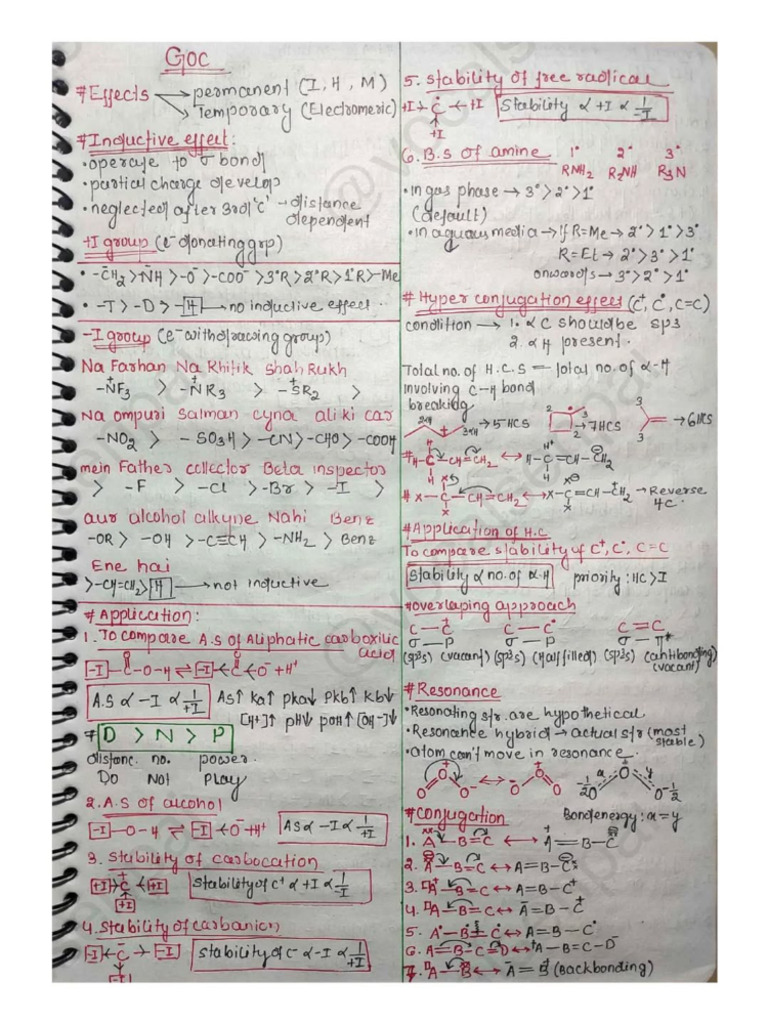 GOC
#Effects → permanent (I, H, M)
→ Temporary (Electromeric)
#Inductive effect:
•operate to σ bond
•partial charge develop
•neglected after 3rd 'C' → distance dependent
+I group (e⁻ donating grp)
• -C̄H₂ > N̄H > -O⁻ > -COO⁻ > 3°R > 2°R > 1°R > -Me
• -T > -D > -H → no inductive effect
-I group (e⁻ withdracwing group)
Na Farhan Na Rhitik Shah Rukh
-N⁺F₃ > -N⁺R₃ > -S⁺R₂ >
Na ompuri Salman cyna ali ki car
-NO₂ > -SO₃H > -CN > -CHO > -COOH
mein Father collector Beta inspector
> -F > -Cl > -Br > -I >
aur alcohol alkyne Nahi Benz
-OR > -OH > -C≡CH > -NH₂ > Benz
Ene hai
> -CH=CH₂ > H → not inductive
#Application:
1. To compare A.S of Aliphatic carboxilic acid
-I -C-O-H ⇌ -I -C-O⁻ + H⁺
O O
A.S ∝ -I ∝ 1/+I
AS↑ Ka↑ pka↓ Pkb↑ Kb↓
[H+]↑ pH↓ pOH↑ [OH-]↓
# D > N > P
distanc. no. power
Do Not Play
2. A.S of alcohol
-I -O-H ⇌ -I -O⁻ + H⁺
AS ∝ -I ∝ 1/+I
3. Stability of carbocation
+I → C⁺ ← +I
+I
Stability of C⁺ ∝ +I ∝ 1/-I
4. Stability of carbanion
-I ← C̄ → -I
-I
Stability of C⁻ ∝ -I ∝ 1/+I
5. Stability of free radical
+I → C• ← +I
+I
Stability ∝ +I ∝ 1/-I
6. B.S of amine 1° 2° 3°
RNH₂ R₂NH R₃N
•In gas phase → 3° > 2° > 1°
(default)
•In aquous media → If R=Me → 2° > 1° > 3°
R=Et → 2° > 3° > 1°
onwards → 3° > 2° > 1°
# Hyper conjugation effect (C⁺, C•, C=C)
condition → 1. ∝ C should be sp3
2. ∝H present.
Total no. of H.C.S = Total no. of ∝-H
Involving C-H bond
breaking
2∝H 3∝H → 5 HCS
2 2 3 → 7HCS
3 3 → 6HCS
# H-C-CH=CH₂ ↔ H-C=CH-CH₂
H H H⁺ H ⊖
# X-C-CH=CH₂ ↔ X-C=CH-CH₂ → Reverse H.C.
X X X⊖ X +
#Application of H.C
To compare stability of C⁺, C•, C=C
Stability ∝ no. of ∝-H
priority: HC > I
#overlaping approach
C - C⁺ C - C• C = C
σ - P σ - P σ - π*
(sp³s) (vacant) (sp³s) (Half filled) (sp³s) (antibonding)
(vacant)
#Resonance
•Resonating str. are hypothetical
•Resonance hybrid → actual str (most stable)
•atom can't move in resonance.
O O⁺ O⁻ ↔ ⁻O O⁺ O
-1/2 O x O⁺ y O -1/2
#Conjugation
Bond energy: x = y
1. A-B=C ↔ A⁺=B-C⊖
2. A⊖-B=C ↔ A=B-C⊖
3. A⁺-B=C ↔ A=B-C⁺
4. A-B=C ↔ Ā=B-C⁺
5. A•-B=C ↔ A=B-C•
6. A=B-C=D ↔ ⁺A-B=C-D⁻
7. A-B ↔ ⁻A=B⁺ (Backbonding)